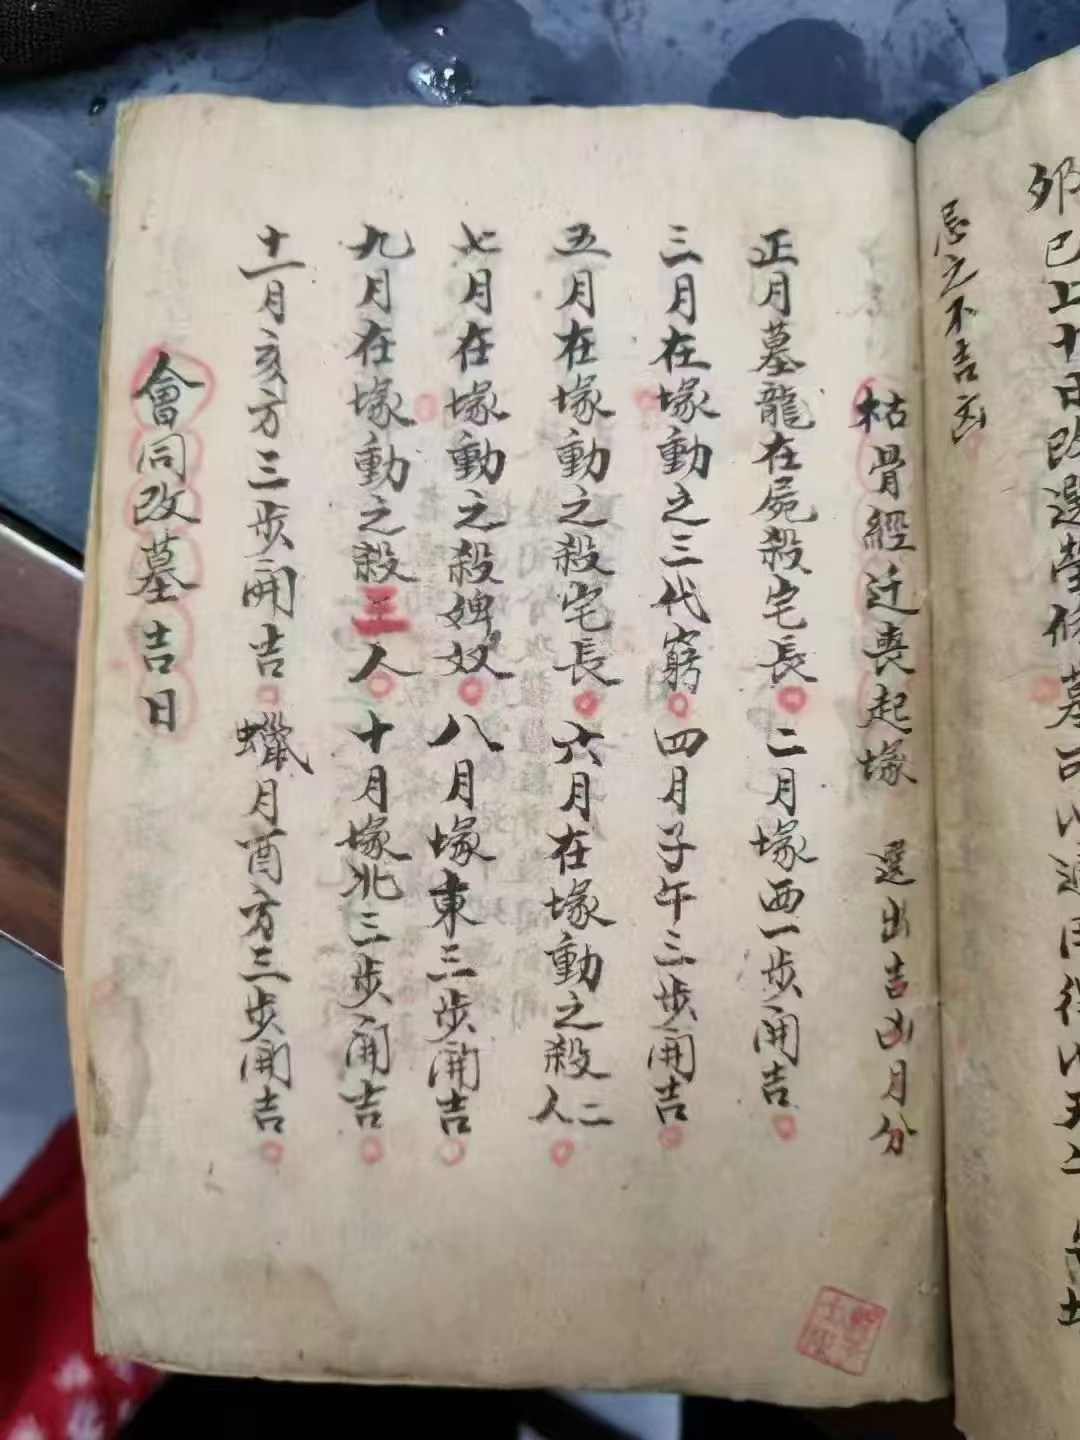 忌之不吉凶
枯骨經迁喪起塚　選出吉凶月分
正月墓龍在屍殺宅長　二月塚西一步開吉
三月在塚動之三代窮　四月子午三步開吉
五月在塚動之殺宅長　六月在塚動之殺人二
七月在塚動之殺婢奴　八月塚東三步開吉
九月在塚動之殺三人　十月塚北三步開吉
十一月亥方三步開吉　蠟月酉方三步開吉
會同改墓吉日